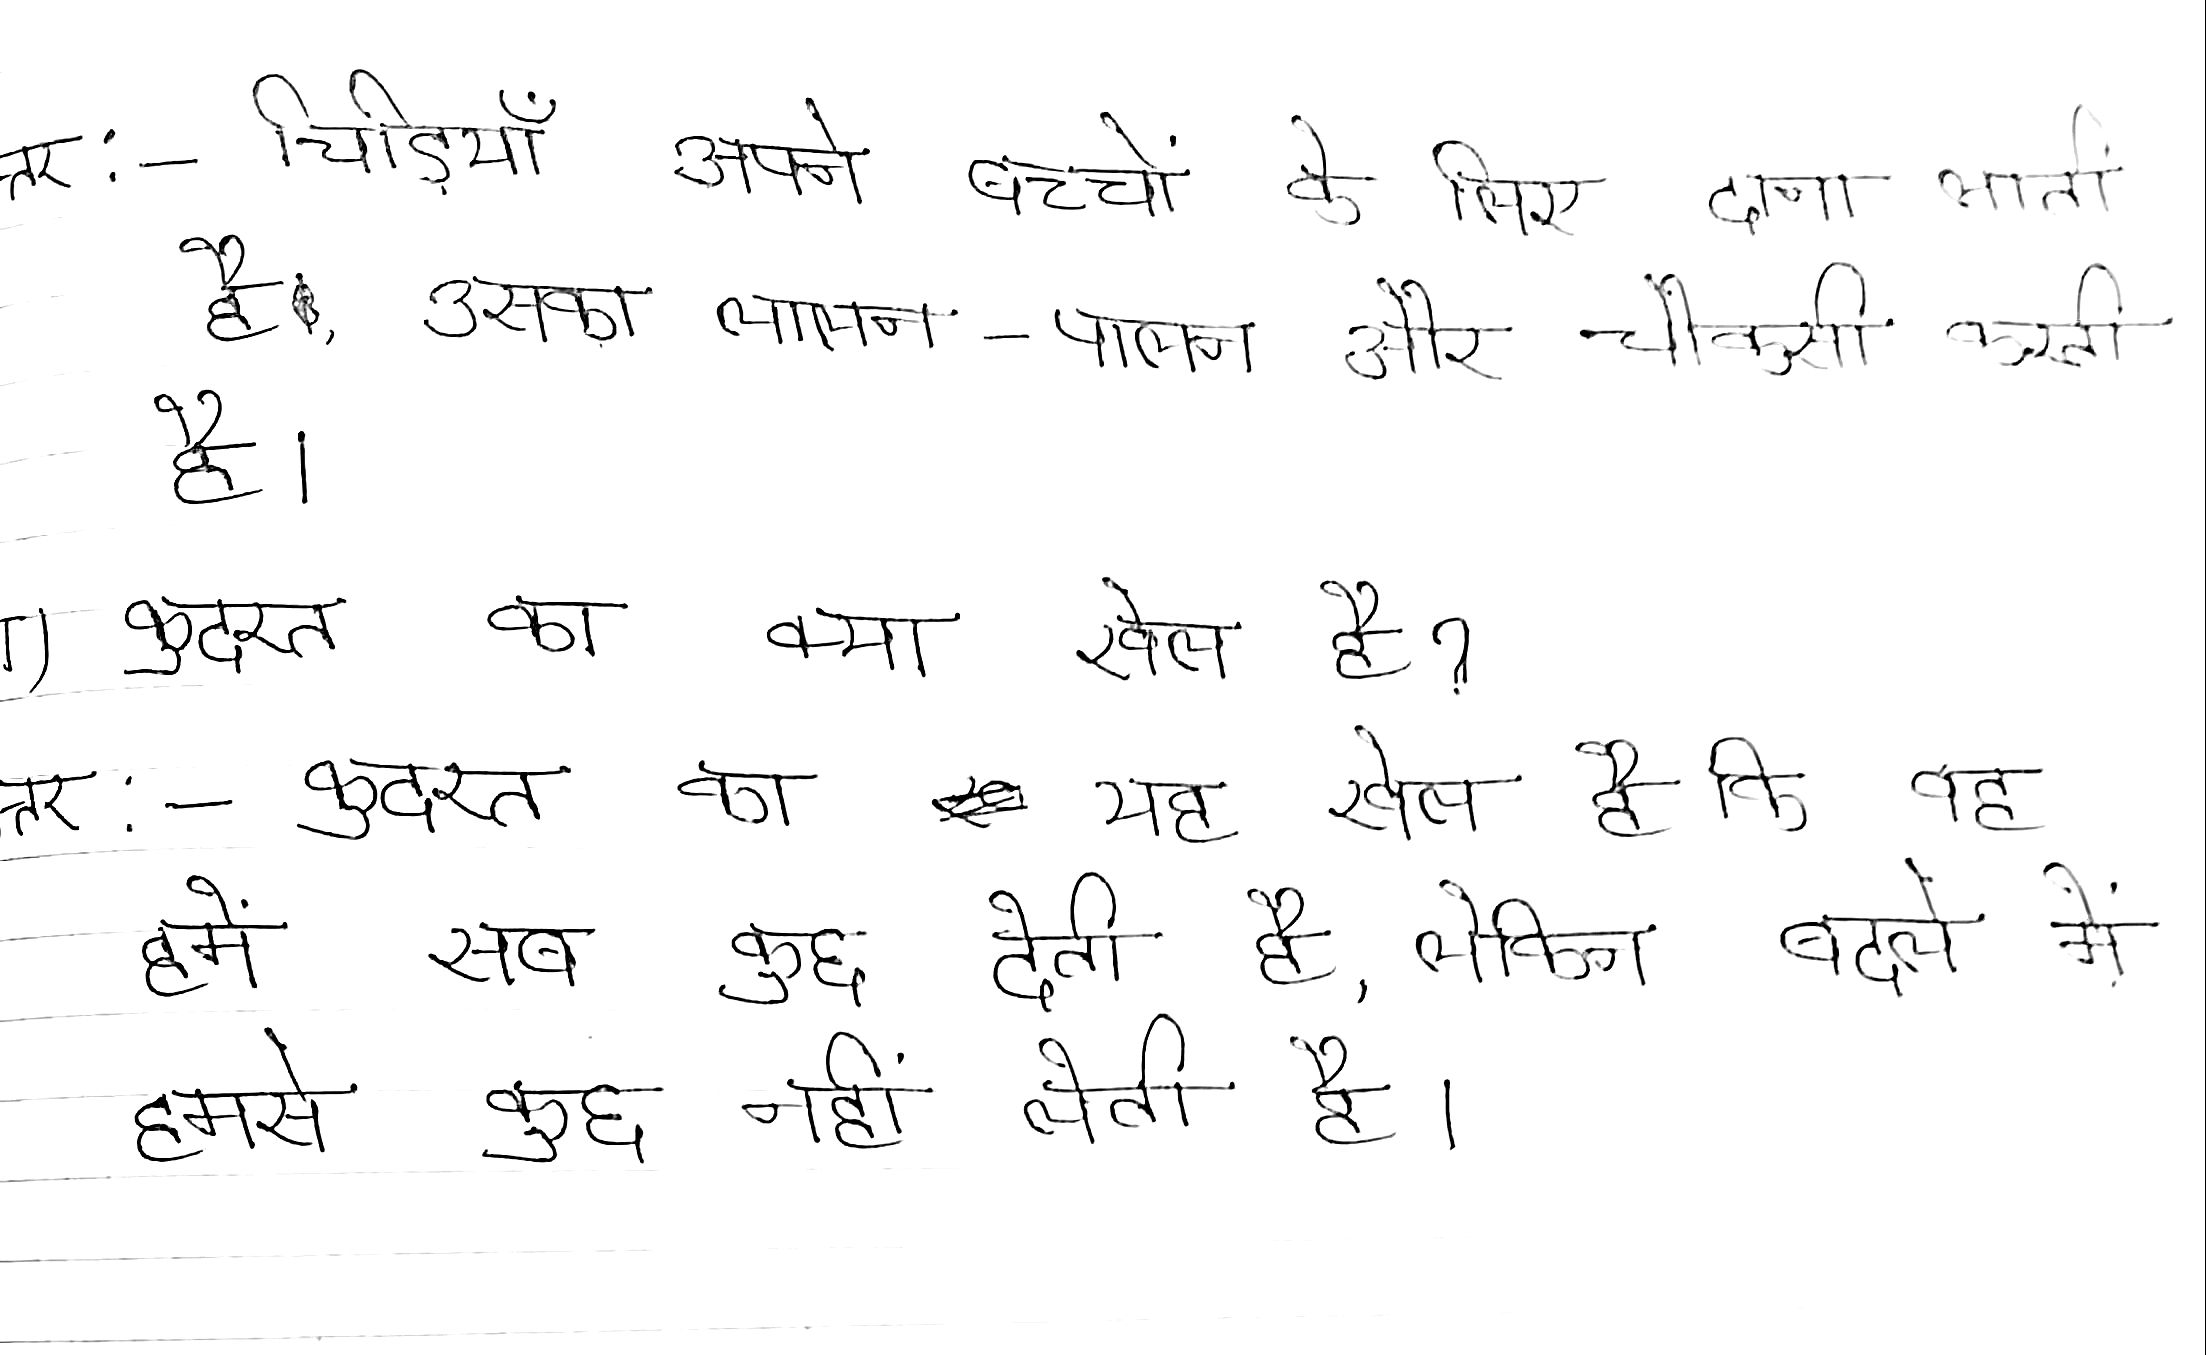 त्तर :- चिड़ियाँ अपने बच्चों के लिए दाना लाती
है, उसका लालन - पालन और चौकसी करती
है।
ग) कुदरत का क्या खेल है?
त्तर :- कुदरत का यह खेल है कि वह
हमें सब कुछ देती है, लेकिन बदले में
हमसे कुछ नहीं लेती है।